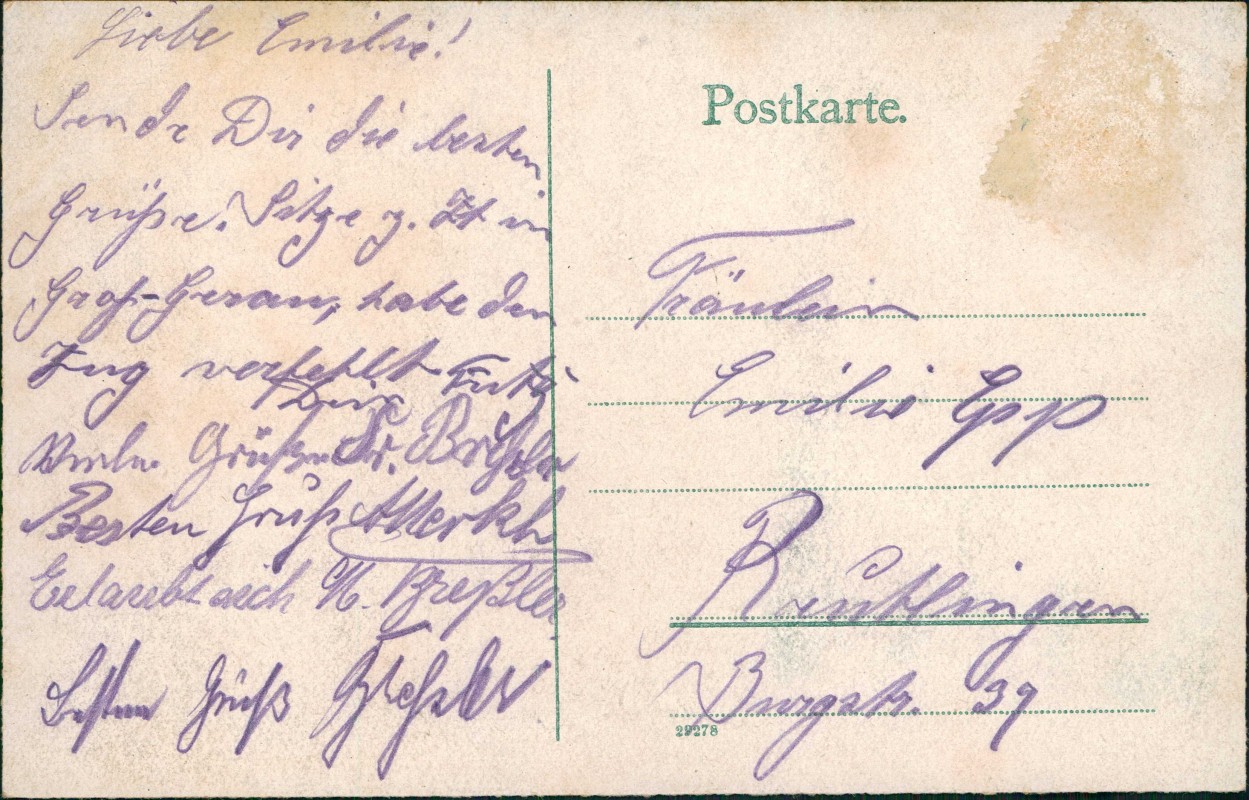 Liebe Emilie!
Sende Dir die besten
Grüße. Sitze z. Zt in
Groß-Gerau, habe den
Zug verfehlt
Dein Fritz
Viele Grüße Fr.
Besten Gruß
Erlaubt sich H. Breßler
Besten Gruß
Postkarte.
Fräulein
Emilie Epp
Reutlingen
Burgstr. 39
29278